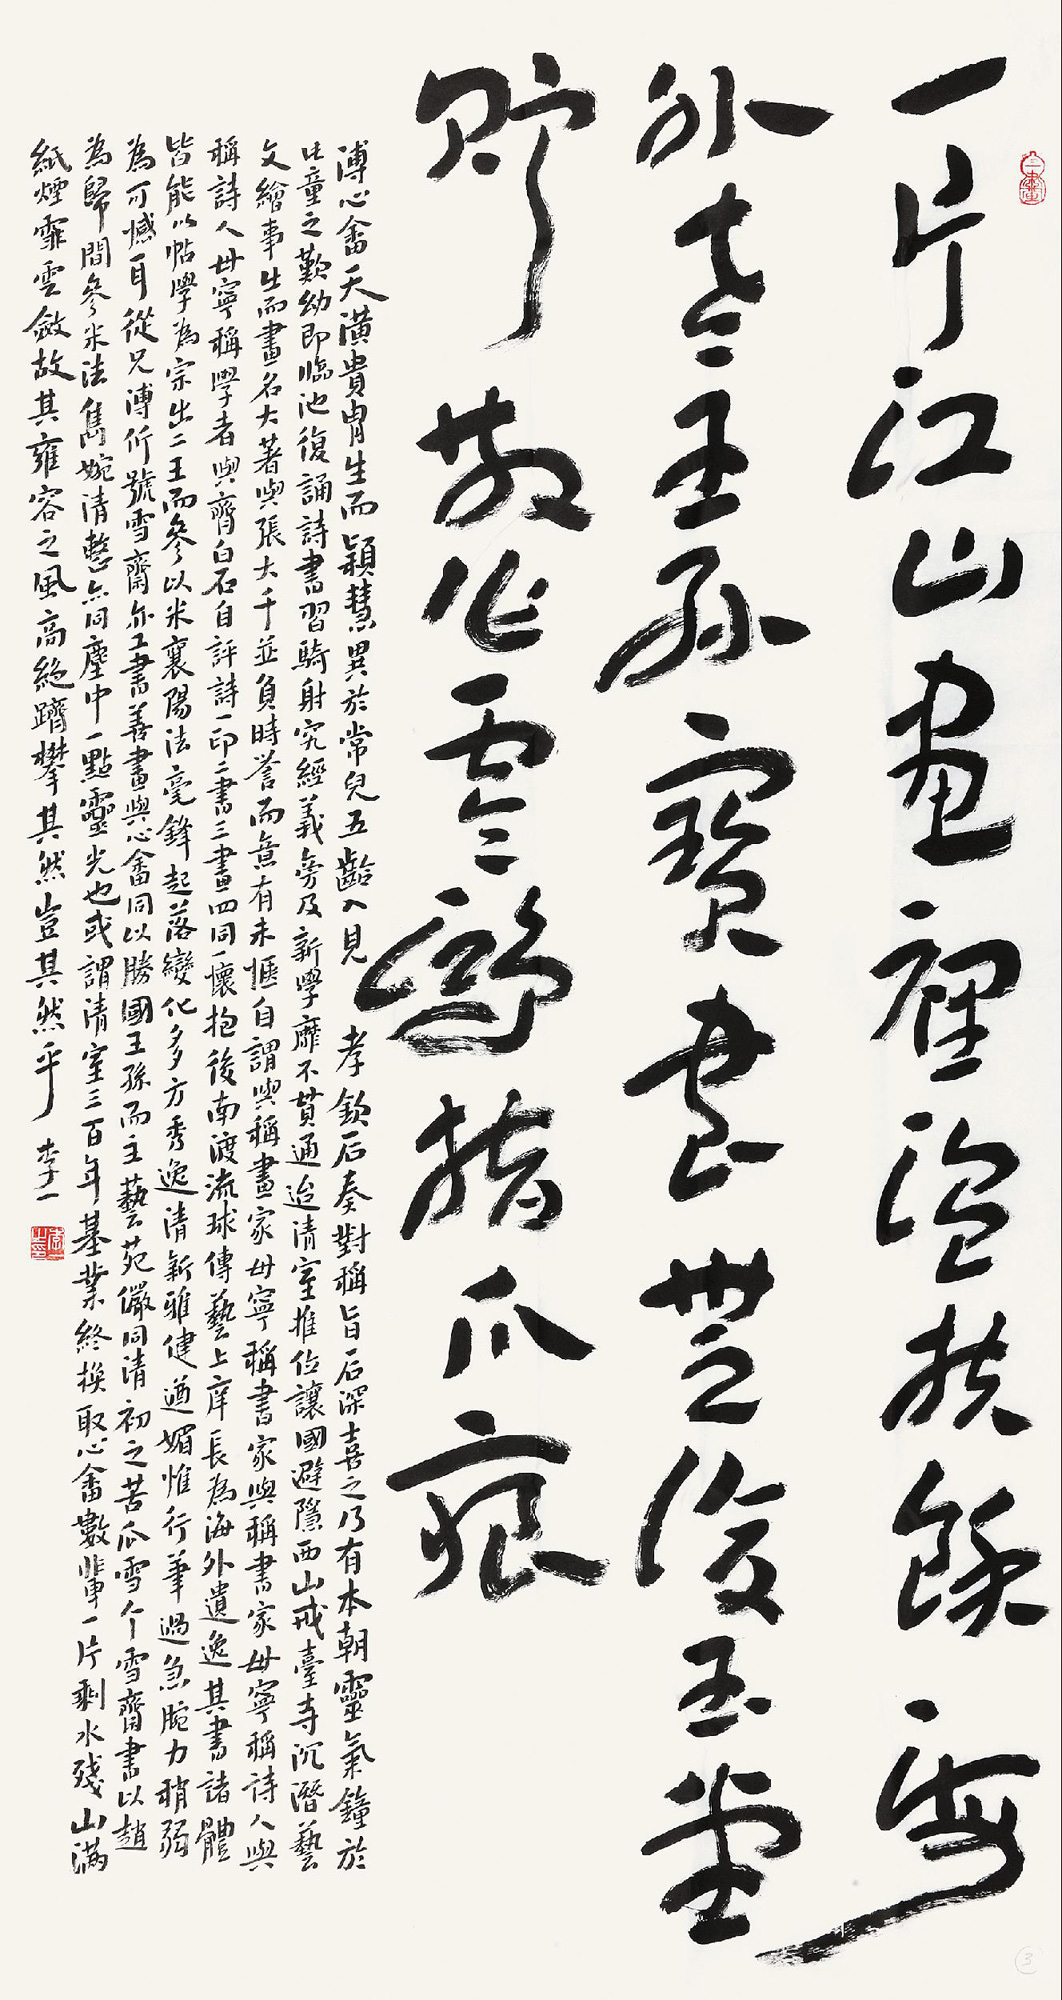 一片江山畫裡溫扶餘海
外老王孫寶書無復玉堂
貯散作雲鴻指爪痕
溥心畬天潢貴胄生而穎慧異於常兒五齡入見 孝欽后奏對稱旨后深喜之乃有本朝靈氣鐘於
此童之歎幼即臨池復誦詩書習騎射究經義旁及新學靡不貫通迨清室推位讓國避隱西山戒臺寺沉潛藝
文繪事生而畫名大著與張大千並負時誉而意有未愜自謂與稱畫家毋寧稱書家與稱書家毋寧稱詩人與
稱詩人毋寧稱學者與齊白石自評詩一印二書三畫四同一懷抱後南渡流球傳藝上庠長為海外遺逸其書諸體
皆能以帖學為宗出二王而參以米襄陽法毫鋒起落變化多方秀逸清新雅健遒媚惟行筆過急腕力稍弱
為可憾耳從兄溥伒號雪齋亦工書善畫與心畬同以勝國王孫而主藝苑儼同清初之苦瓜雪个雪齋書以趙
為歸間參米法雋婉清整亦同塵中一點靈光也或謂清室三百年基業終換取心畬數輩一片剩水殘山滿
紙煙霏雲斂故其雍容之風高絕躋攀其然豈其然乎 李一
3